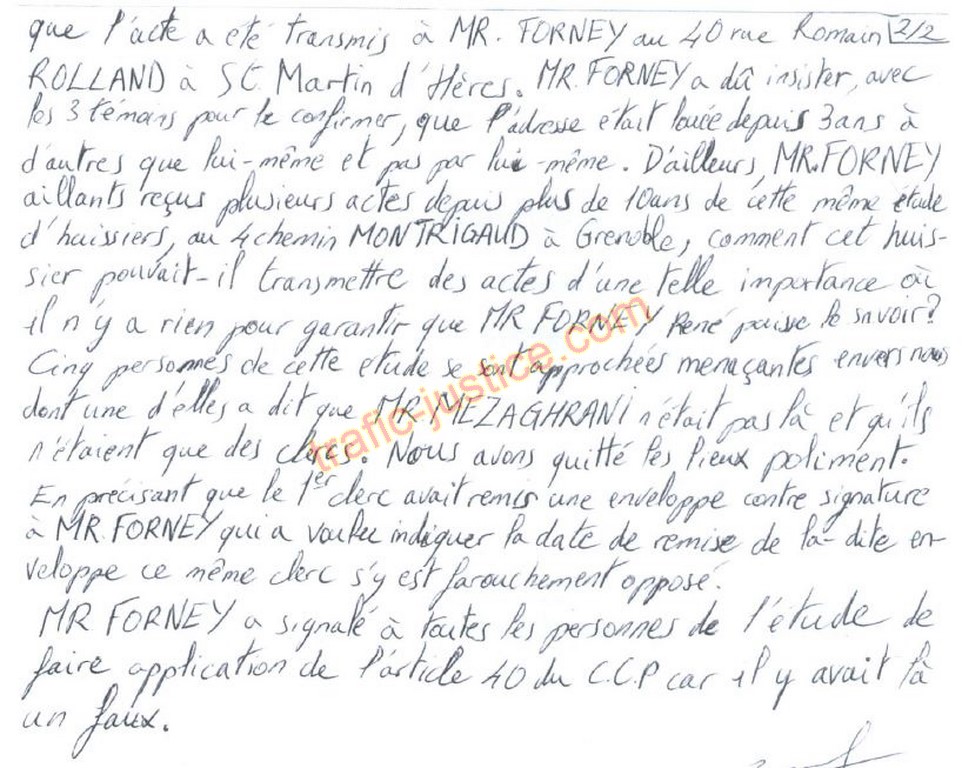 que l'acte a été transmis à MR. FORNEY au 40 rue Romain 2/2
ROLLAND à St Martin d'Hères. MR. FORNEY a dû insister, avec
les 3 témoins pour le confirmer, que l'adresse était louée depuis 3 ans à
d'autres que lui-même et pas par lui-même. D'ailleurs, MR. FORNEY
aillants reçus plusieurs actes depuis plus de 10 ans de cette même étude
d'huissiers, au 4 chemin MONTRIGAUD à Grenoble, comment cet huis-
sier pouvait-il transmettre des actes d'une telle importance où
il n'y a rien pour garantir que MR FORNEY René puisse le savoir?
Cinq personnes de cette etude se sont approchées menaçantes envers nous
dont une d'elles a dit que MR MEZAGHRANI n'était pas là et qu'ils
n'étaient que des clercs. Nous avons quitté les lieux poliment.
En précisant que le 1er clerc avait remis une enveloppe contre signature
à MR. FORNEY qui a voulu indiquer la date de remise de la-dite en-
veloppe ce même clerc s'y est farouchement opposé.
MR FORNEY a signalé à toutes les personnes de l'étude de
faire application de l'article 40 du C.C.P car il y avait là
un faux.
trafic-justice.com